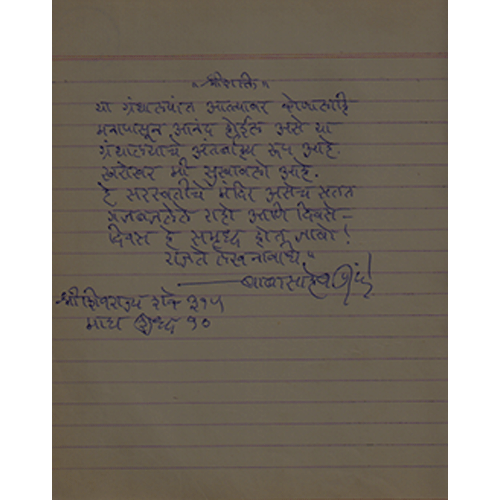 "श्री शक्ति"
या ग्रंथालयांत आल्यावर कोणालाही
मनापासून आनंद होईल असे या
ग्रंथालयाचे अंतर्बाह्य रूप आहे.
खरोखर मी सुखावलो आहे.
हे सरस्वतीचे मंदिर असेच सतत
गजबजलेले राहो आणि दिवसें-
दिवस हे समृद्ध होत जावो!
राजते लेखनावधि."
बाबासाहेब
श्रीशिवराज्य शके ३१५
माघ शुद्ध १०